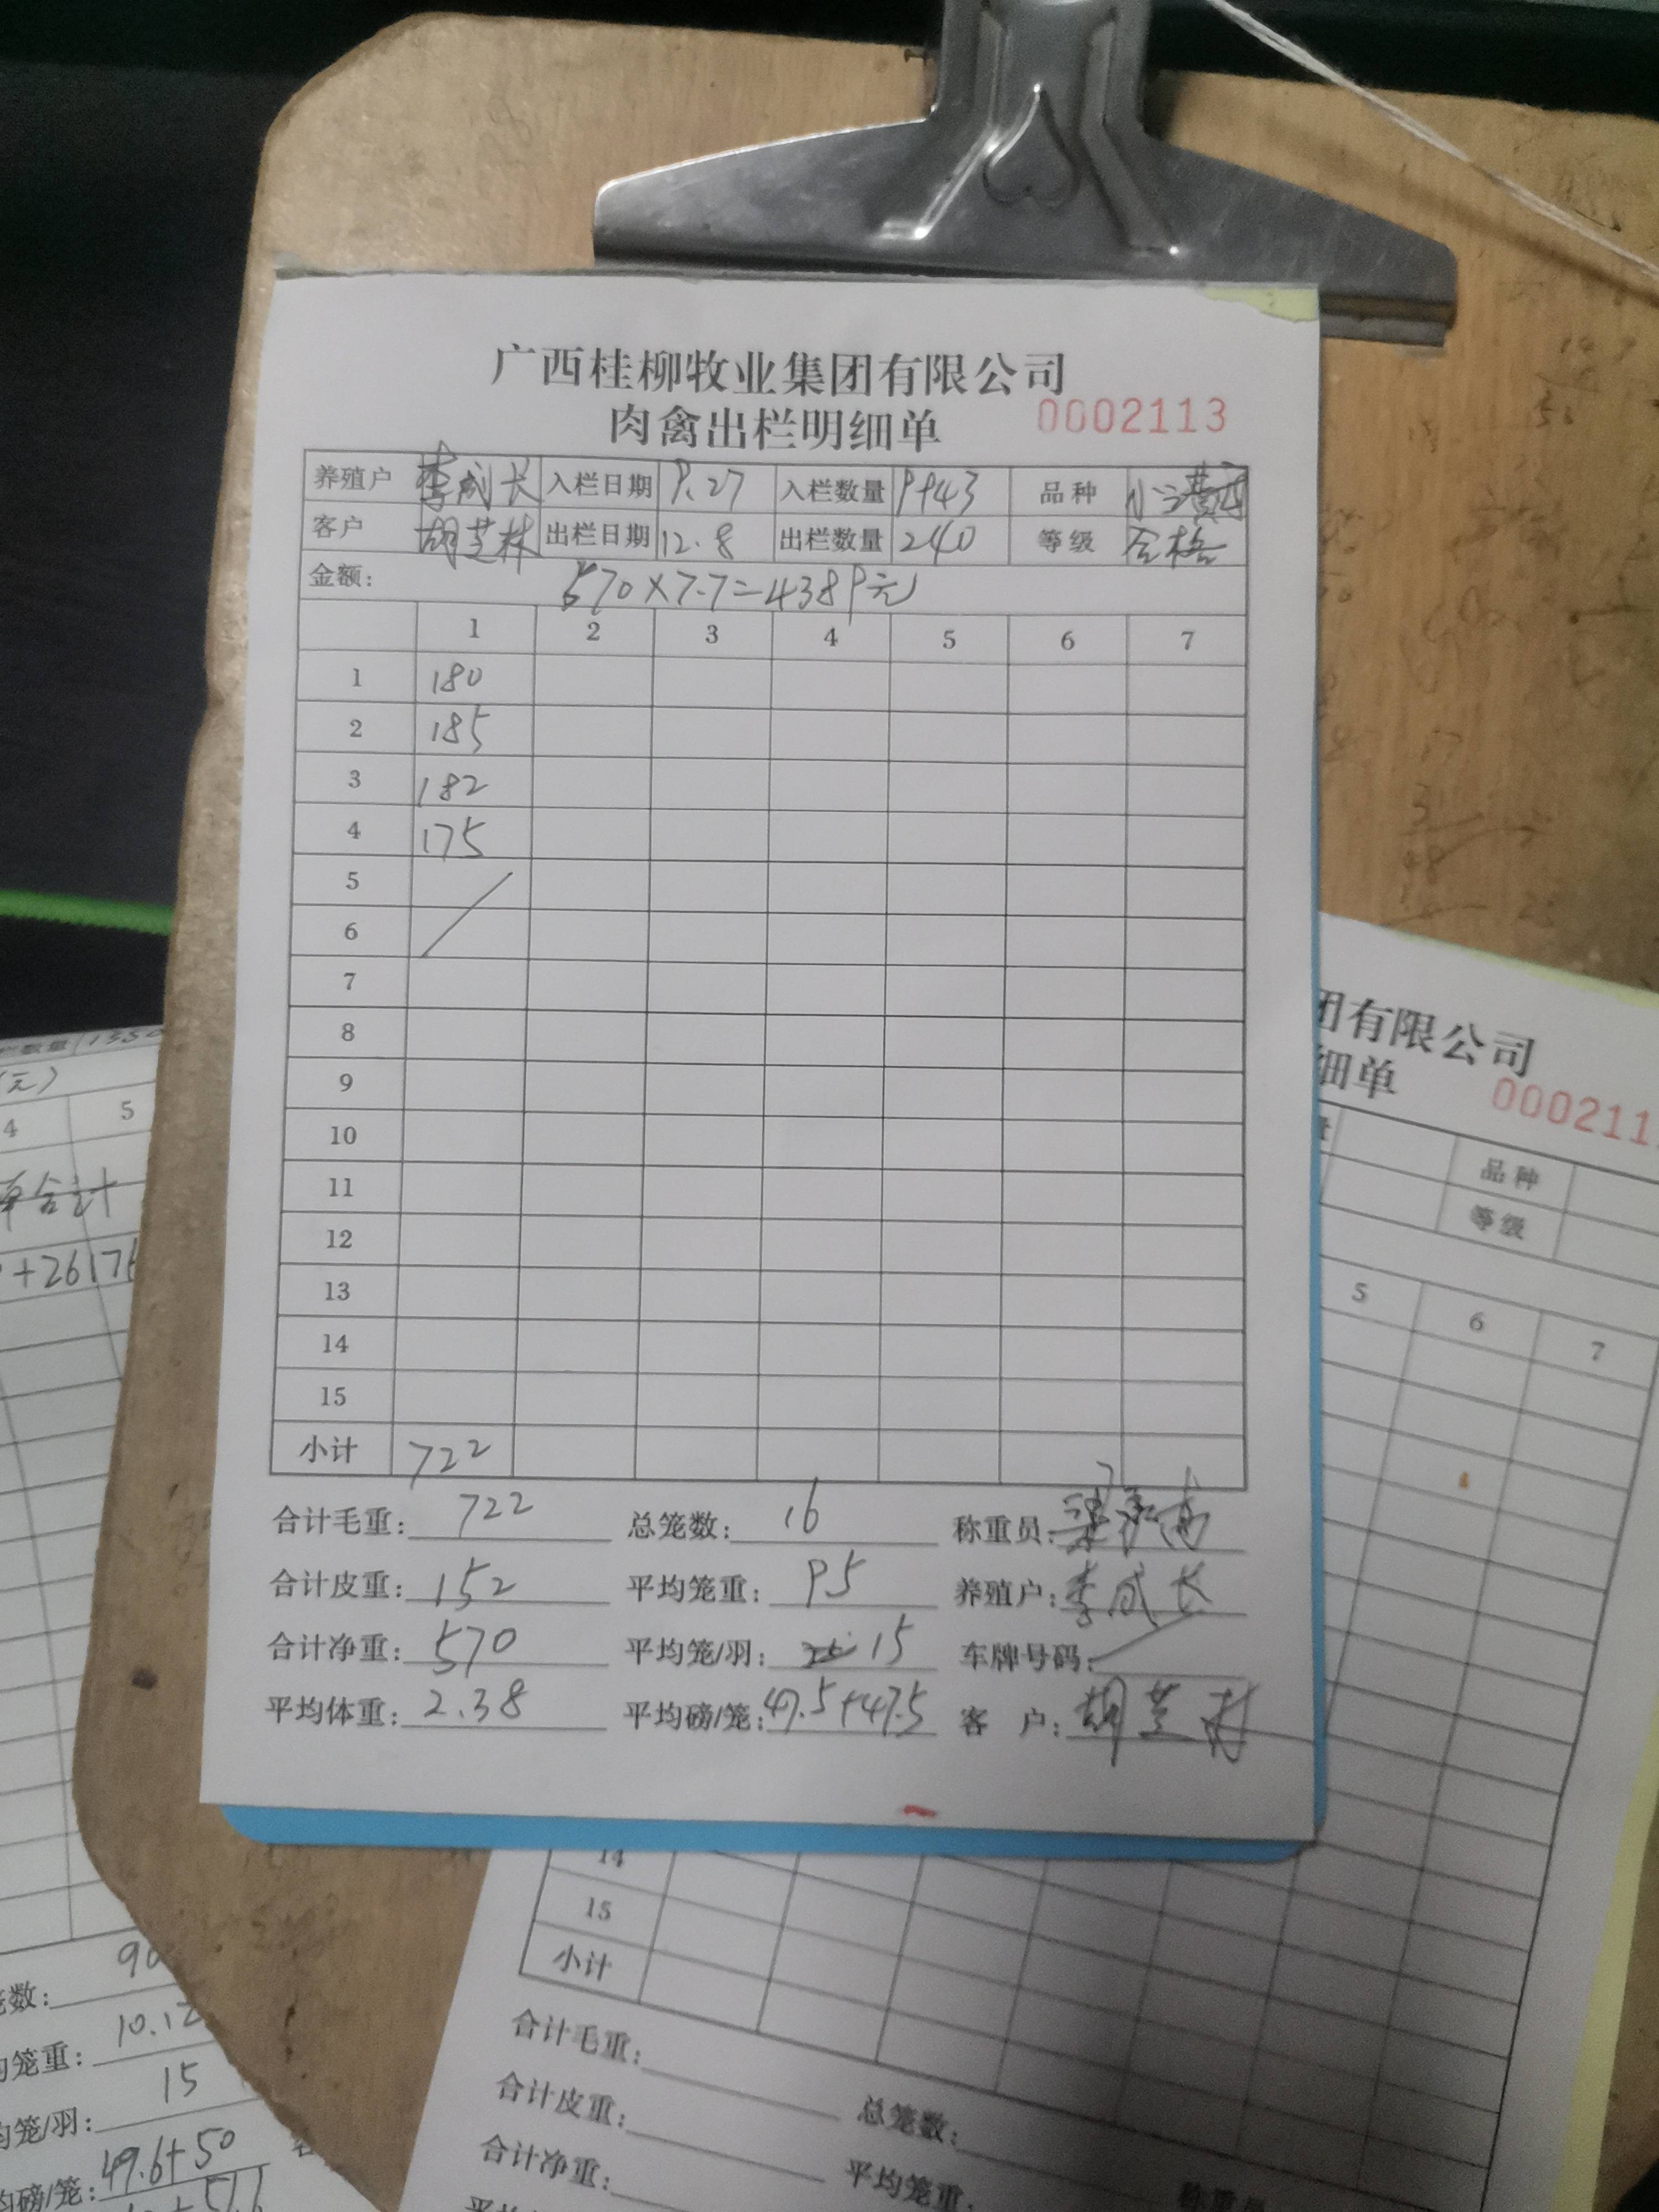 广西桂柳牧业集团有限公司
肉禽出栏明细单 0002113
养殖户 李成长 入栏日期 9.27 入栏数量 9443 品种
客户 胡芝林 出栏日期 12.8 出栏数量 240 等级 合格
金额: 570×7.7=4389元
1 2 3 4 5 6 7
1 180
2 185
3 182
4 175
5
6
7
8
9
10
11
12
13
14
15
小计 722
合计毛重: 722 总笼数: 16 称重员:
合计皮重: 152 平均笼重: 95 养殖户: 李成长
合计净重: 570 平均笼/羽: 15 车牌号码:
平均体重: 2.38 平均磅/笼: 47.5+47.5 客 户: 胡芝林
团有限公司
细单 000211
品种
等级
5 6 7
14
15
小计
合计毛重: 总笼数:
合计皮重: 平均笼重:
合计净重: 称重员
栏数量 1550
(元)
4 5
单合计
+26176
笼数: 90
均笼重: 10.12
均笼/羽: 15
均磅/笼: 49.6+50